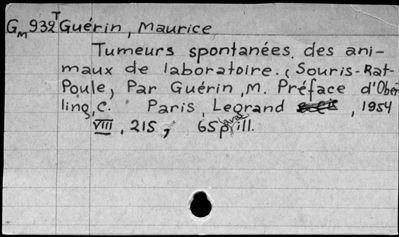 G_M 932^T Guérin, Maurice
Tumeurs spontanées des ani-
maux de laboratoire. (Souris-Rat-
Poule, Par Guérin, M. Préface d'Ober
ling, C. Paris, Legrand , 1954
VIII, 215, 65 ill.